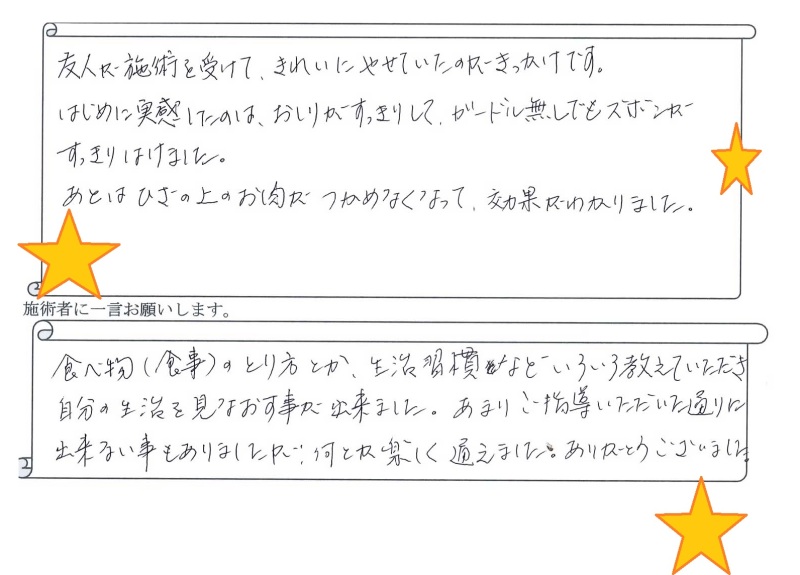 友人が施術を受けて、きれいにやせていたのがきっかけです。
はじめに実感したのは、おしりがすっきりして、ガードル無しでもズボンが
すっきりはけました。
あとはひざの上のお肉がつかめなくなって、効果がわかりました。
施術者に一言お願いします。
食べ物(食事)のとり方とか、生活習慣などいろいろ教えていただき
自分の生活を見なおす事が出来ました。あまりご指導いただいた通りに
出来ない事もありましたが、何とか楽しく通えました。ありがとうございました。